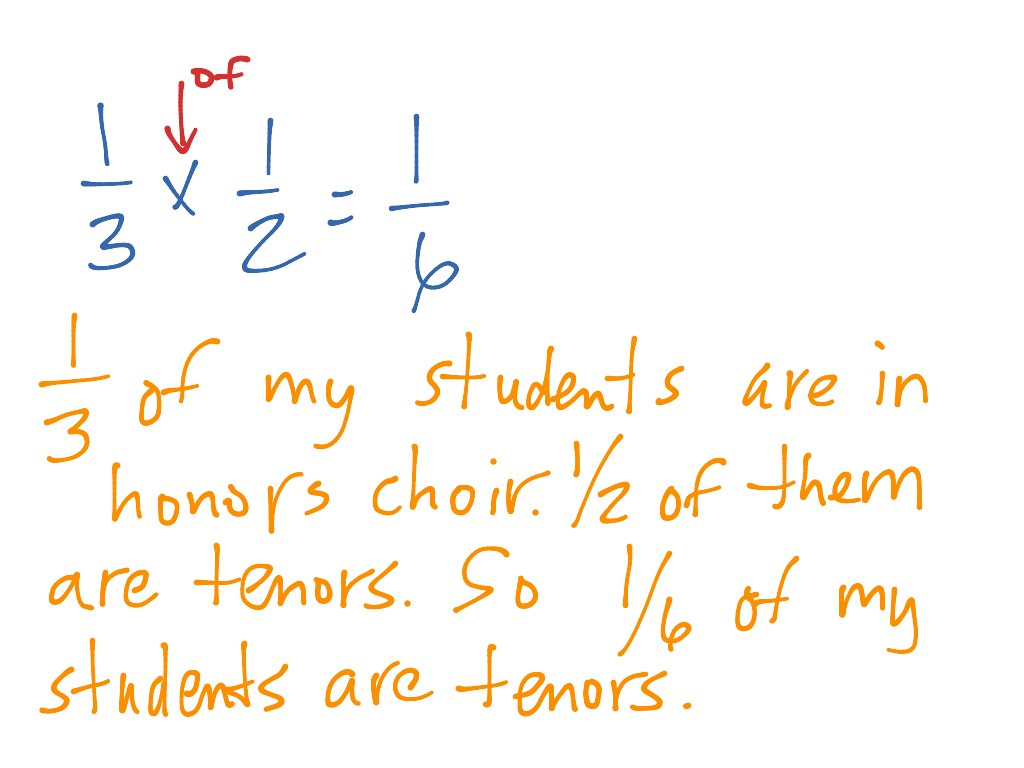 of
1/3 x 1/2 = 1/6
1/3 of my students are in
honors choir. 1/2 of them
are tenors. So 1/6 of my
students are tenors.